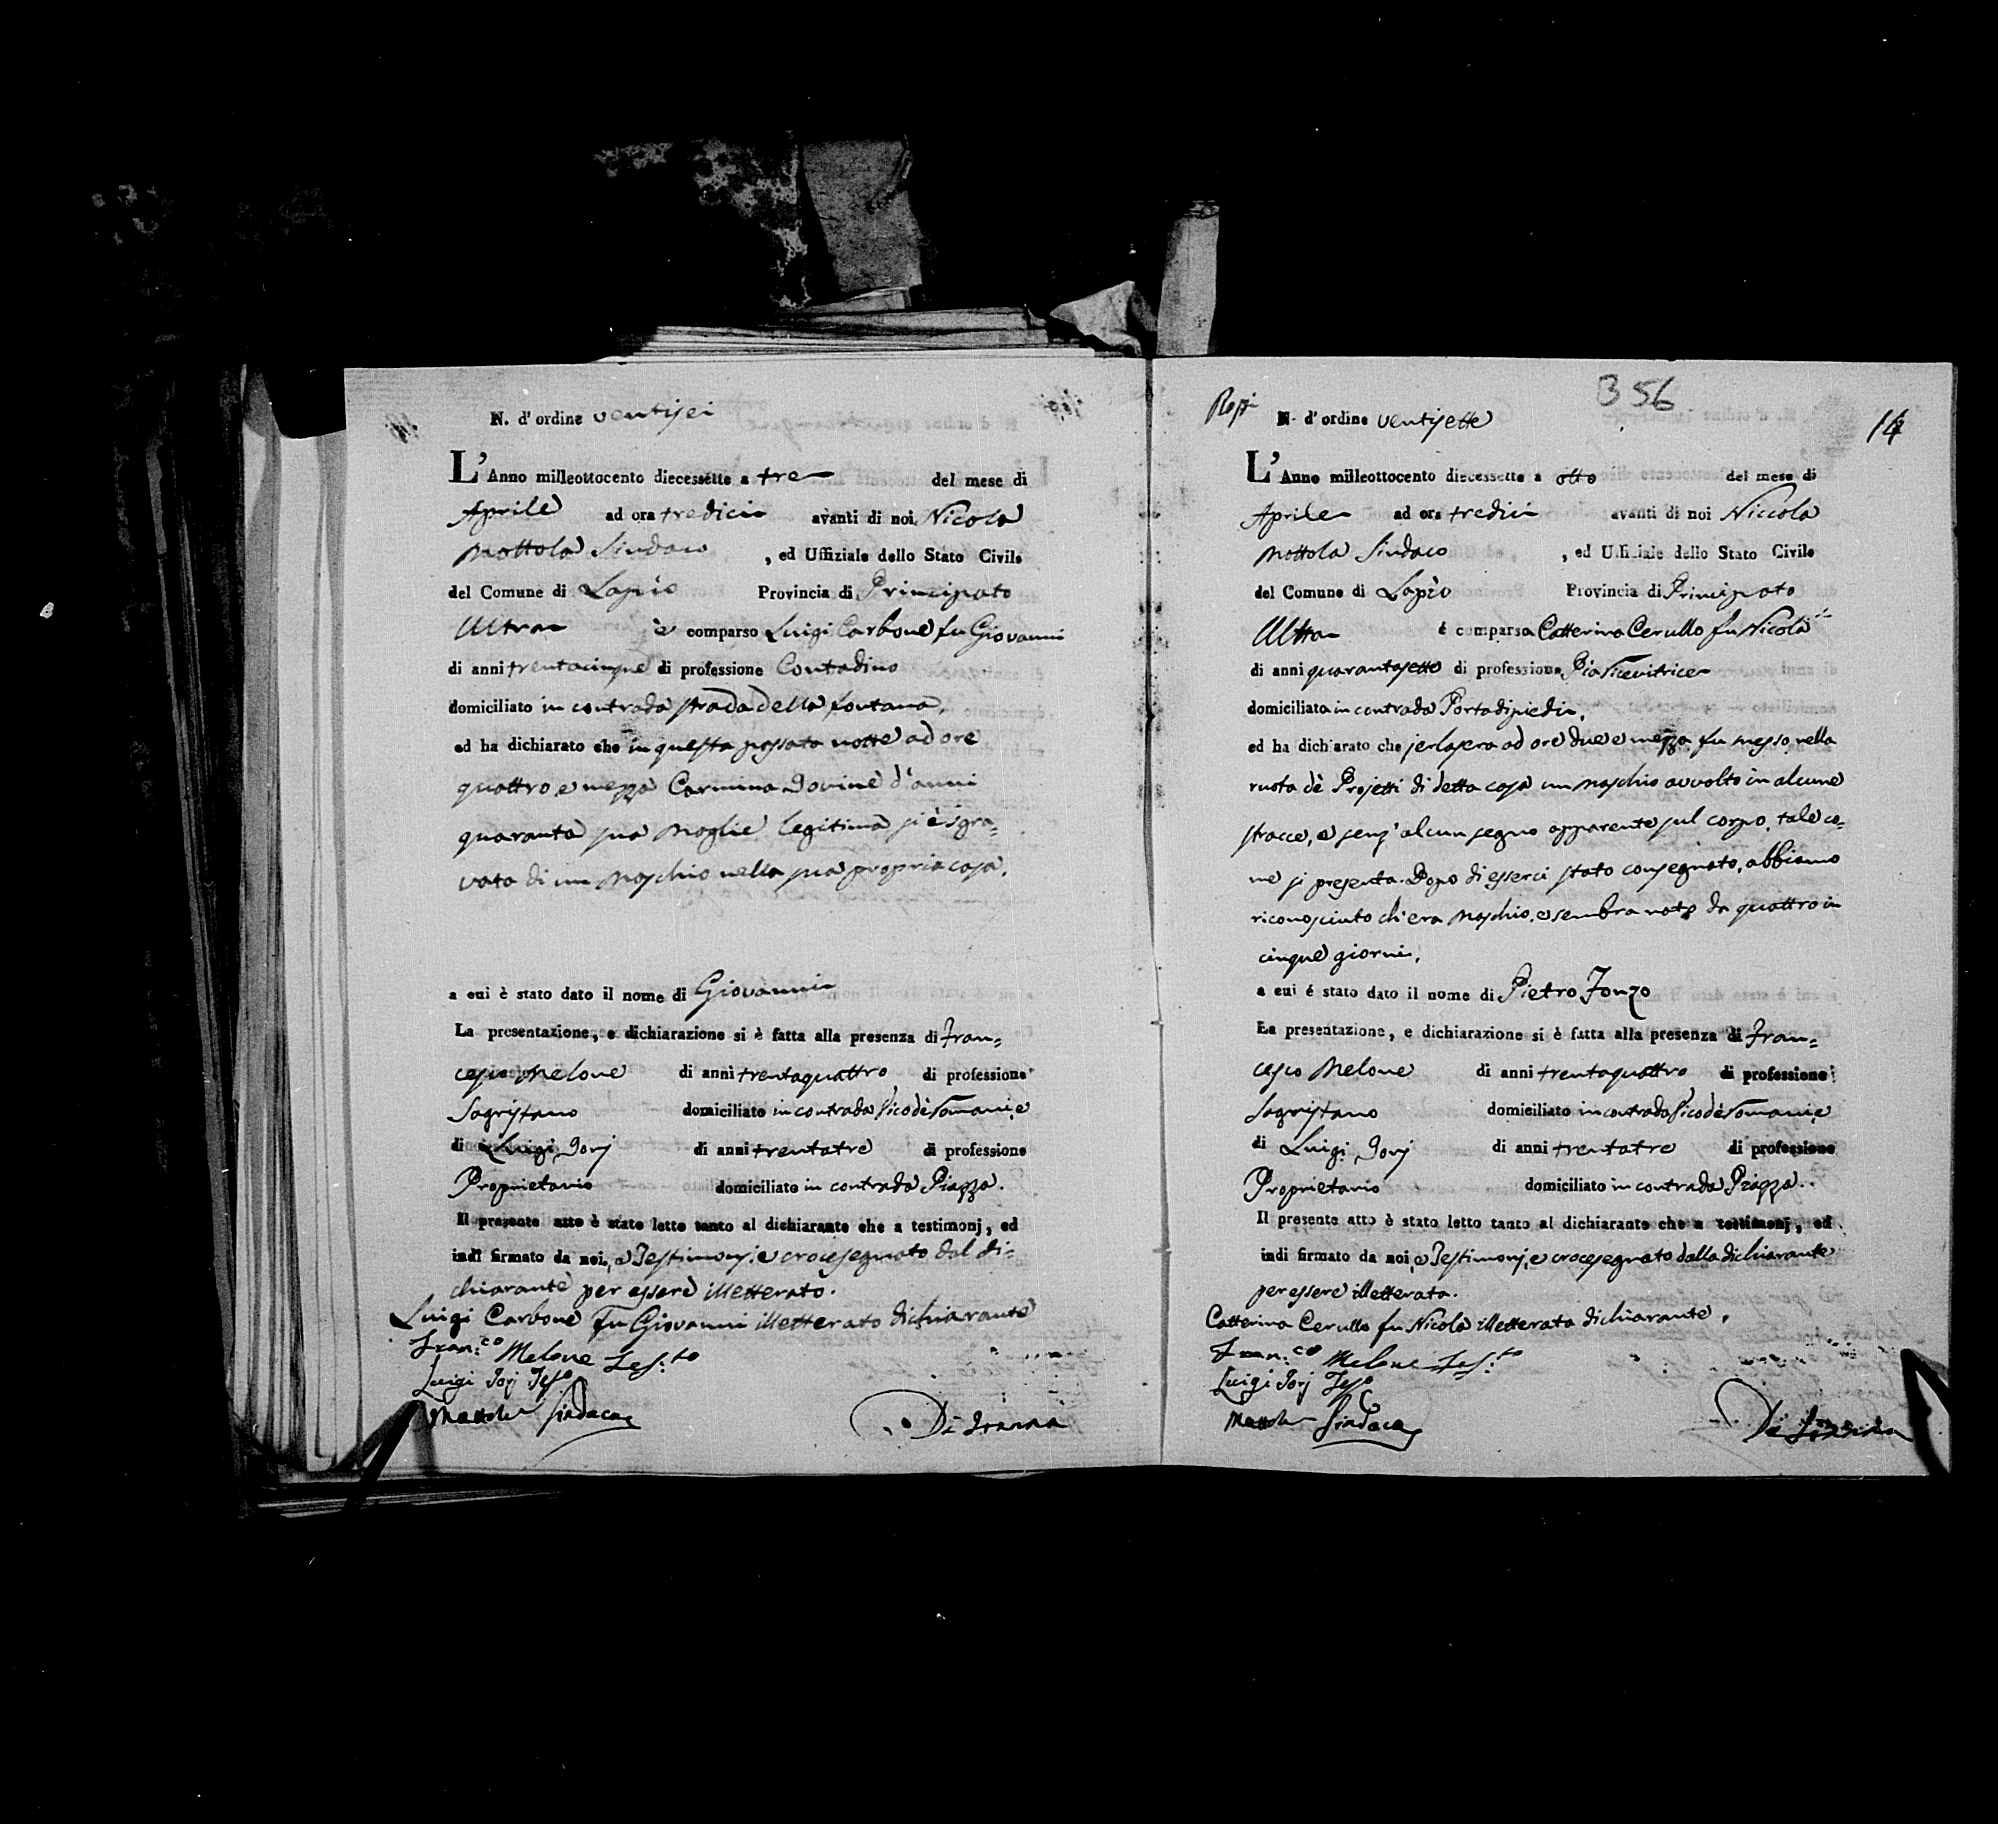 N. d' ordine ventisei
L'Anno milleottocento diecessette a tre del mese di
Aprile ad ora tredici avanti di noi Nicola
Mottola Sindaco , ed Uffiziale dello Stato Civile
del Comune di Lapio Provincia di Principato
Ultra è comparso Luigi Carbone fu Giovanni
di anni trentacinque di professione Contadino
domiciliato in contrada strada della fontana,
ed ha dichiarato che in questa passata notte ad ore
quattro, e mezza Carmina Iovine d'anni
quaranta sua moglie legitima si è sgra=
vata di un maschio nella sua propria casa.
a cui è stato dato il nome di Giovanni
La presentazione, e dichiarazione si è fatta alla presenza di Fran=
cesco Melone di anni trentaquattro di professione
Sagristano domiciliato in contrada Vico de e
di Luigi Iorj di anni trentatre di professione
Proprietario domiciliato in contrada Piazza.
Il presente atto è stato letto tanto al dichiarante che a testimonj, ed
indi firmato da noi, e Testimonj, e crocesegnato dal di=
chiarante per essere illetterato.
Luigi Carbone fu Giovanni illetterato dichiarante
Fran:co Melone Tes:to
Luigi Iorj Teso
Mottola Sindaco
N. d' ordine ventisette
B 56
14
L'Anno milleottocento diecessette a otto del mese di
Aprile ad ora tredici avanti di noi Niccola
Mottola Sindaco , ed Uffiziale dello Stato Civile
del Comune di Lapio Provincia di Principato
Ultra é comparsa Catterina Cerullo fu Nicola
di anni quarantasette di professione Pia Ricevitrice
domiciliata in contrada Portadipiedi,
ed ha dichiarato che jerlasera ad ore due e mezza fu messo nella
ruota dè Projetti di detta casa un maschio avvolto in alcune
stracce, e senz' alcun segno apparente sul corpo, tale co=
me si presenta. Dopo di esserci stato consegnato, abbiamo
riconosciuto ch'era maschio, e sembra nato da quattro in
cinque giorni,
a cui é stato dato il nome di Pietro Fonzo
La presentazione, e dichiarazione si è fatta alla presenza di Fran=
cesco Melone di anni trentaquattro di professione
Sagristano domiciliato in contrada Vico dè e
di Luigi Iorj di anni trentatre di professione
Proprietario domiciliato in contrada Piazza.
Il presente atto è stato letto tanto al dichiarante che a testimonj, ed
indi firmato da noi, e Testimonj, e crocesegnato dalla dichiarante
per essere illetterata.
Catterina Cerullo fu Nicola illetterata dichiarante,
Fran:co Melone Tes:to
Luigi Iorj Teso
Mottola Sindaco